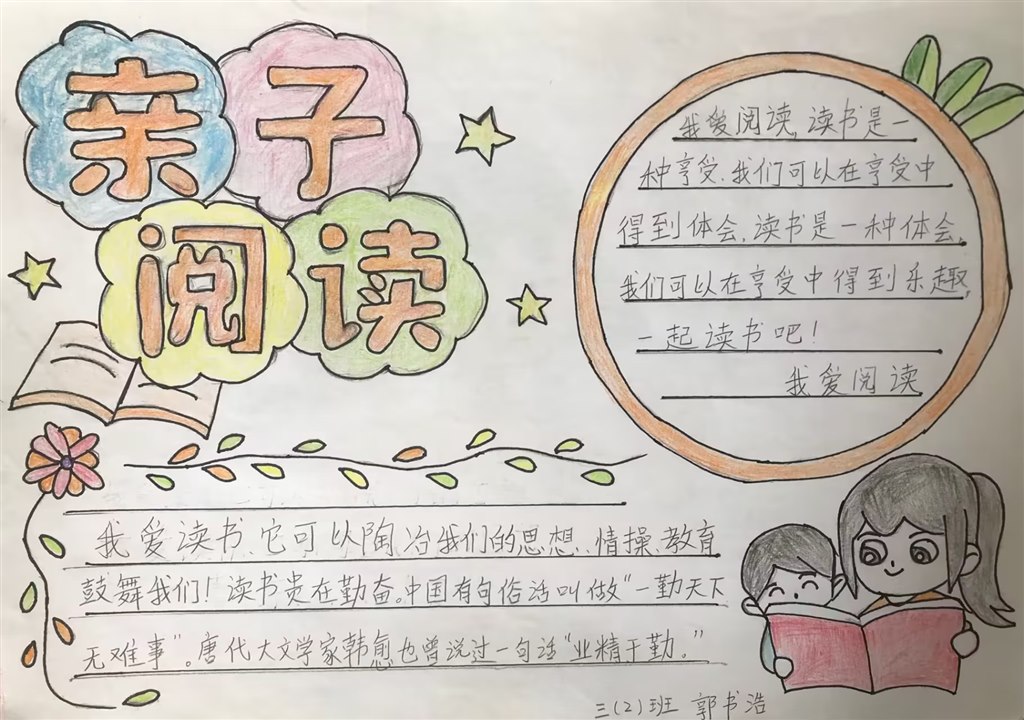 亲子
阅读
我爱阅读,读书是一
种享受.我们可以在享受中
得到体会,读书是一种体会,
我们可以在享受中得到乐趣,
一起读书吧!
我爱阅读
我爱读书,它可以陶冶我们的思想、情操、教育
鼓舞我们!读书贵在勤奋。中国有句俗话叫做“一勤天下
无难事”。唐代大文学家韩愈也曾说过一句话“业精于勤。”
三(2)班 郭书浩